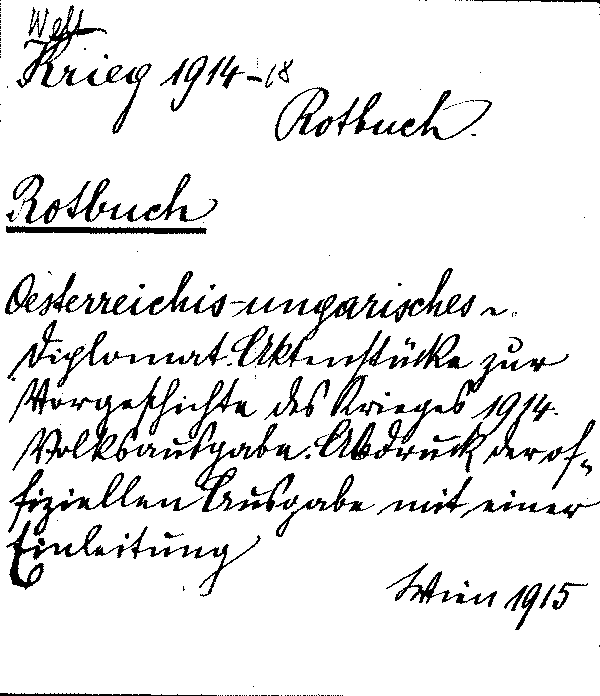 Welt
Krieg 1914-18
Rotbuch.
Rotbuch
Oesterreichis-ungarisches -.
Diplomat. Aktenstücke zur
Vorgeschichte des Krieges 1914.
Volksausgabe. Abdruck der of-
fiziellen Ausgabe mit einer
Einleitung
Wien 1915